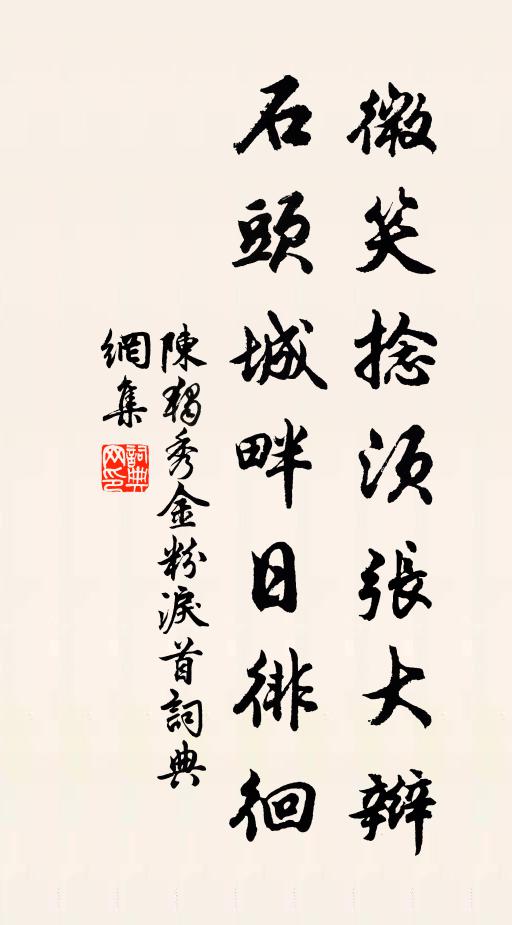 微笑捻须張大辮
石頭城畔日徘徊
陳獨秀金粉淚首詞典
網集
詞典網印